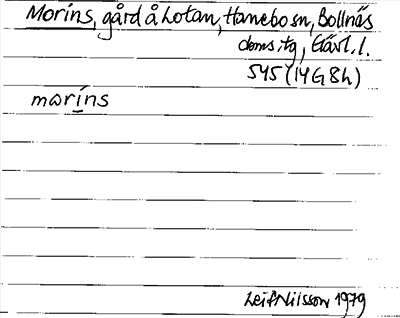 Morins, gård å Lotan, Hanebo sn, Bollnäs
doms.tg, Gävl. l.
545 (14G 8h)
mωrı́ns
Leif Nilsson 1979